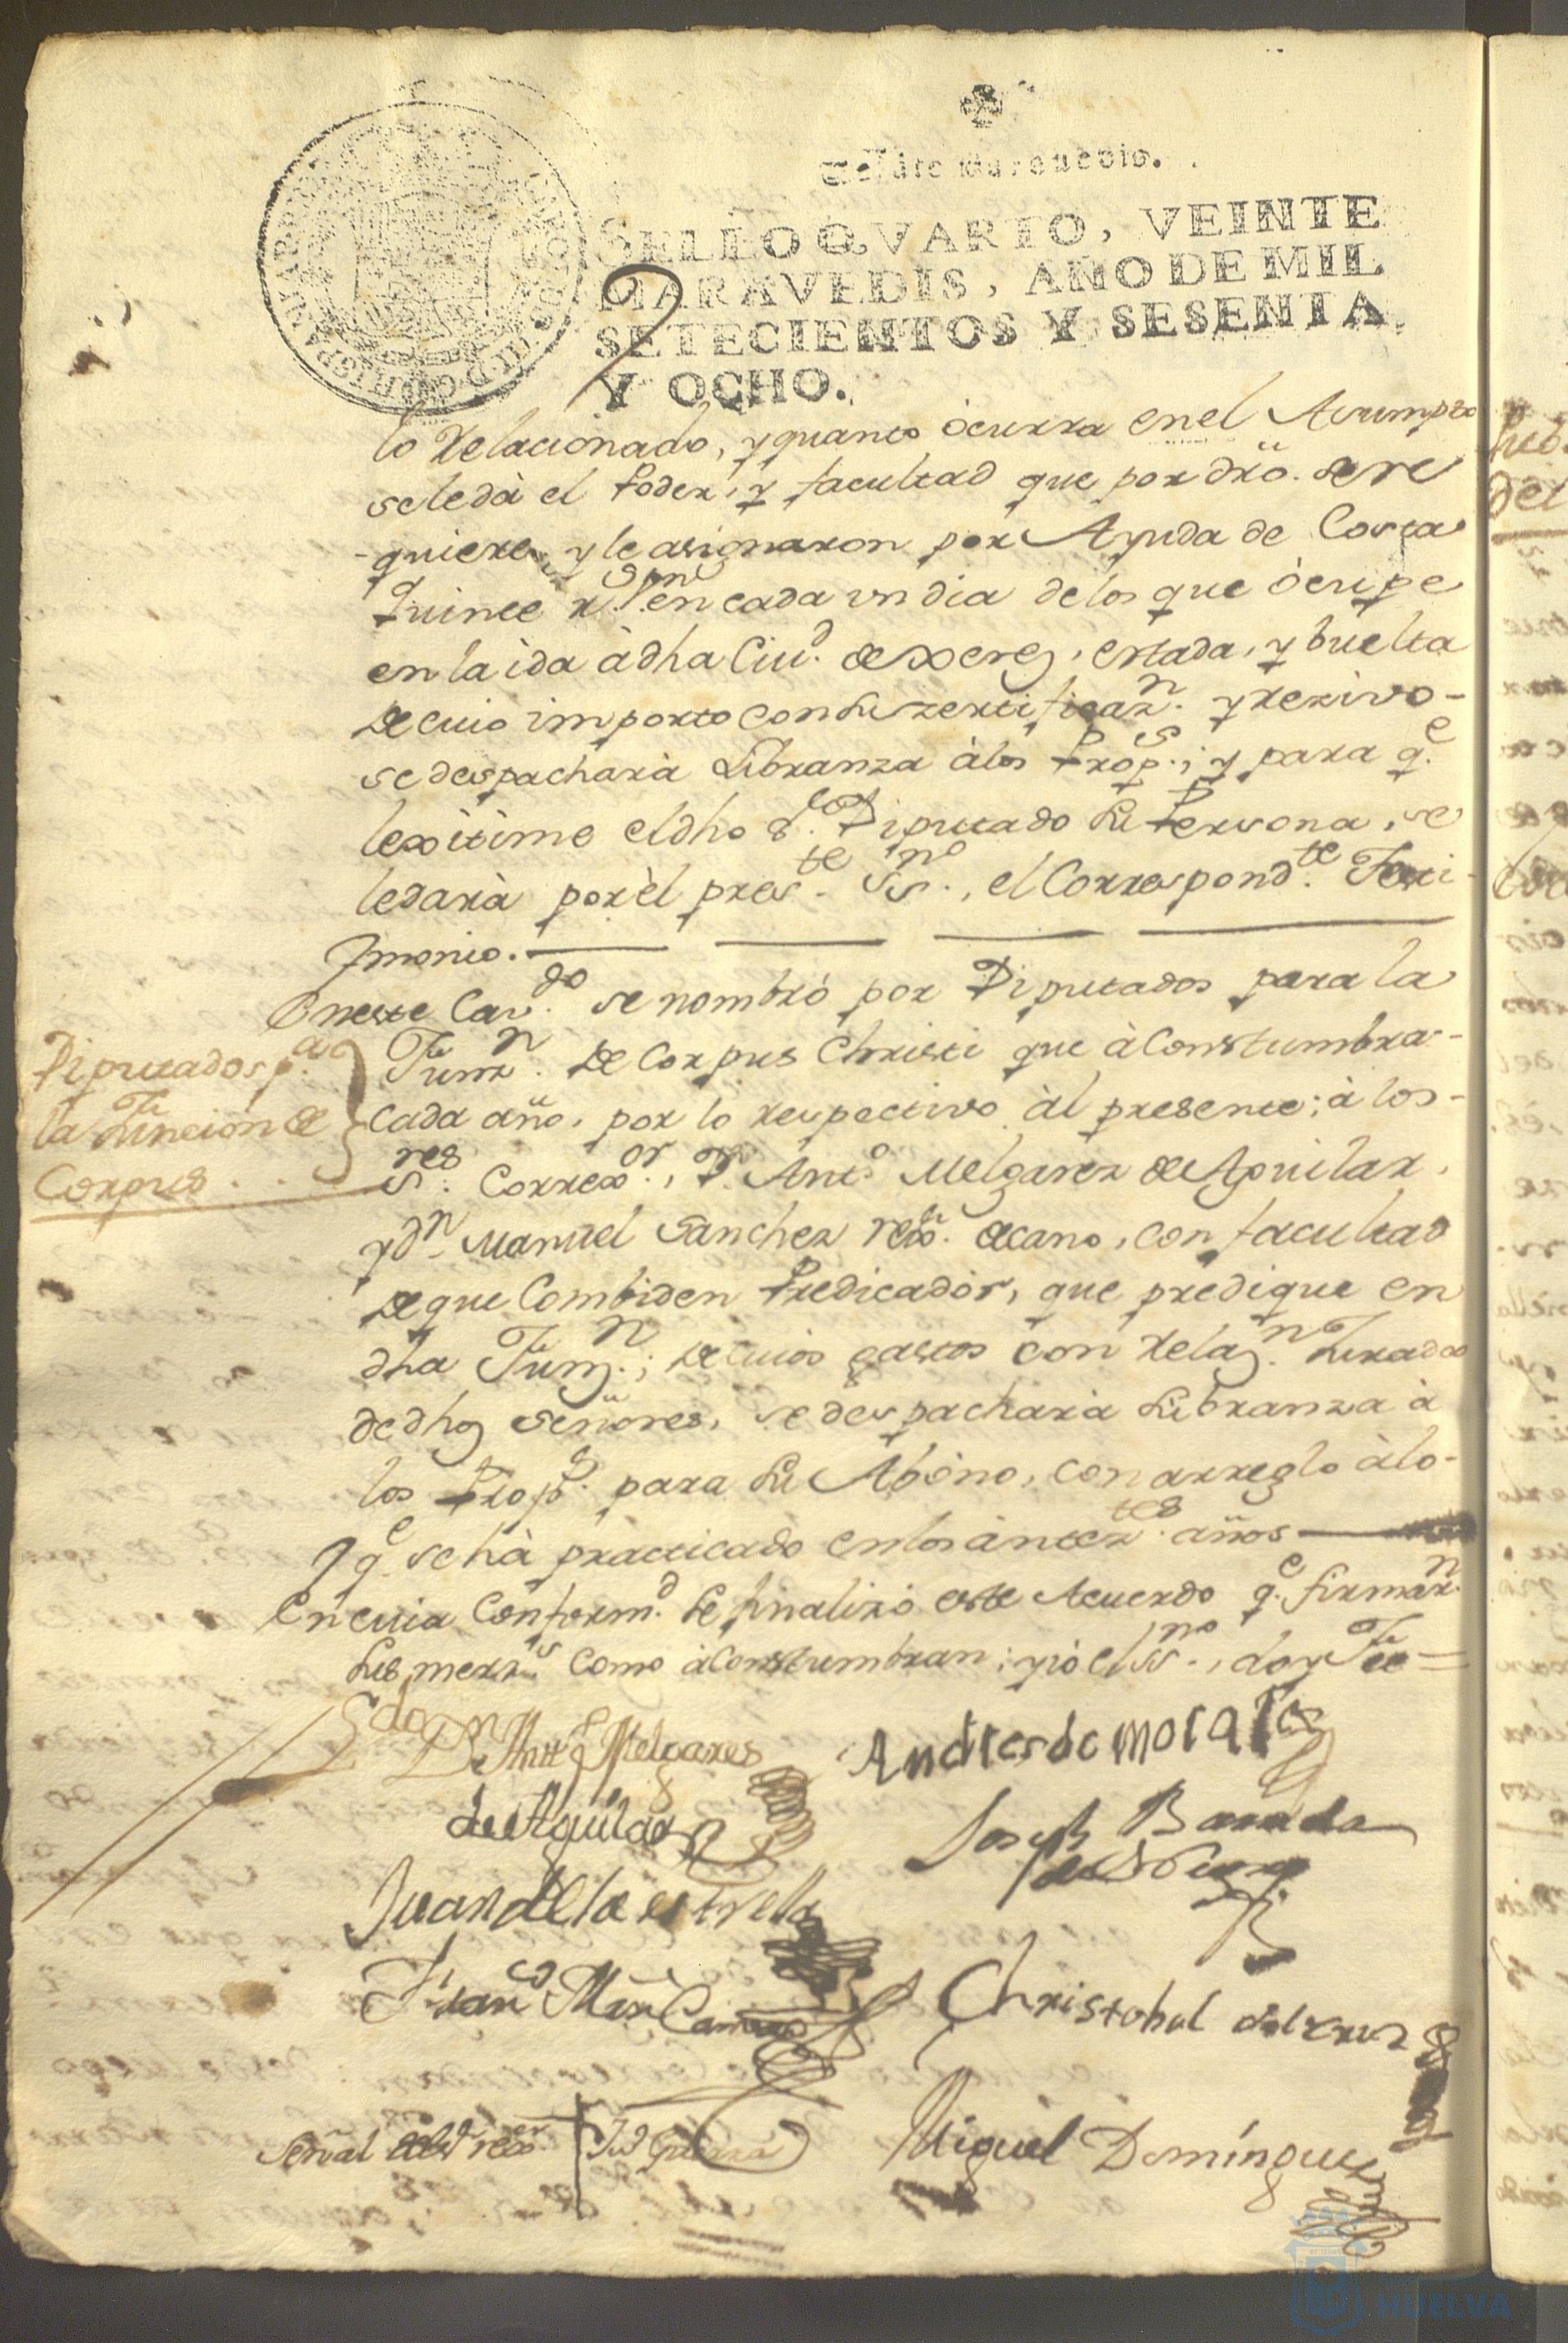 SELLO QVARTO, VEINTE
MARAVEDIS, AÑO DE MIL
SETECIENTOS Y SESENTA
Y OCHO.
lo Relacionado, y quanto ócurra en el Asumpto
se le dà el Poder, y facultad que por dro. se re
quiere, y le asignaron por Ayuda de Costa
Quince rs. vn en cada un dia de los que ócupe
en la ida à dha Ciud. de Xerez, estada, y buelta
de cuio importo con su zertificazn. y rezivo
se despacharà Libranza àlos Props.; y para qe
lexitime el dho sor. Diputado su Persona, se
le darà por èl preste. SSno., el Correspondte. Testi
monio.
En este Cavdo. se nombró por Diputados para la
Diputados pa.
la Funcion de
Corpus
Funzn. de Corpus Christi que àConstumbra
cada año, por lo respectivo àl presente; à los
Sres. Correxor., Dn. Anto Melgarez de Aguilar,
y dn. Manuel Sanchez rexr. decano, con facultad
de que Combiden Predicador, que predique en
dha Funzn.; de cuios gastos con Relazn. Jurada
de dhos señores, se despacharà Libranza à
los Props. para su Abóno, con arreglo àlo
qe se hà practicado en los àntezres. años
En cuia Conformd. se finalizó este Acuerdo qe. firmarn.
sus merzs. como àConstumbran; yó el SSno., doy Fee =
Ldo Dn Antto Melgares
de Aguilar
Andres de Morales
Joseph Barreda
Juan de la estrella
Franco Mrn Camero
Christobal del cruz
Señal del sr rexor
Miguel Dominguez
HUELVA